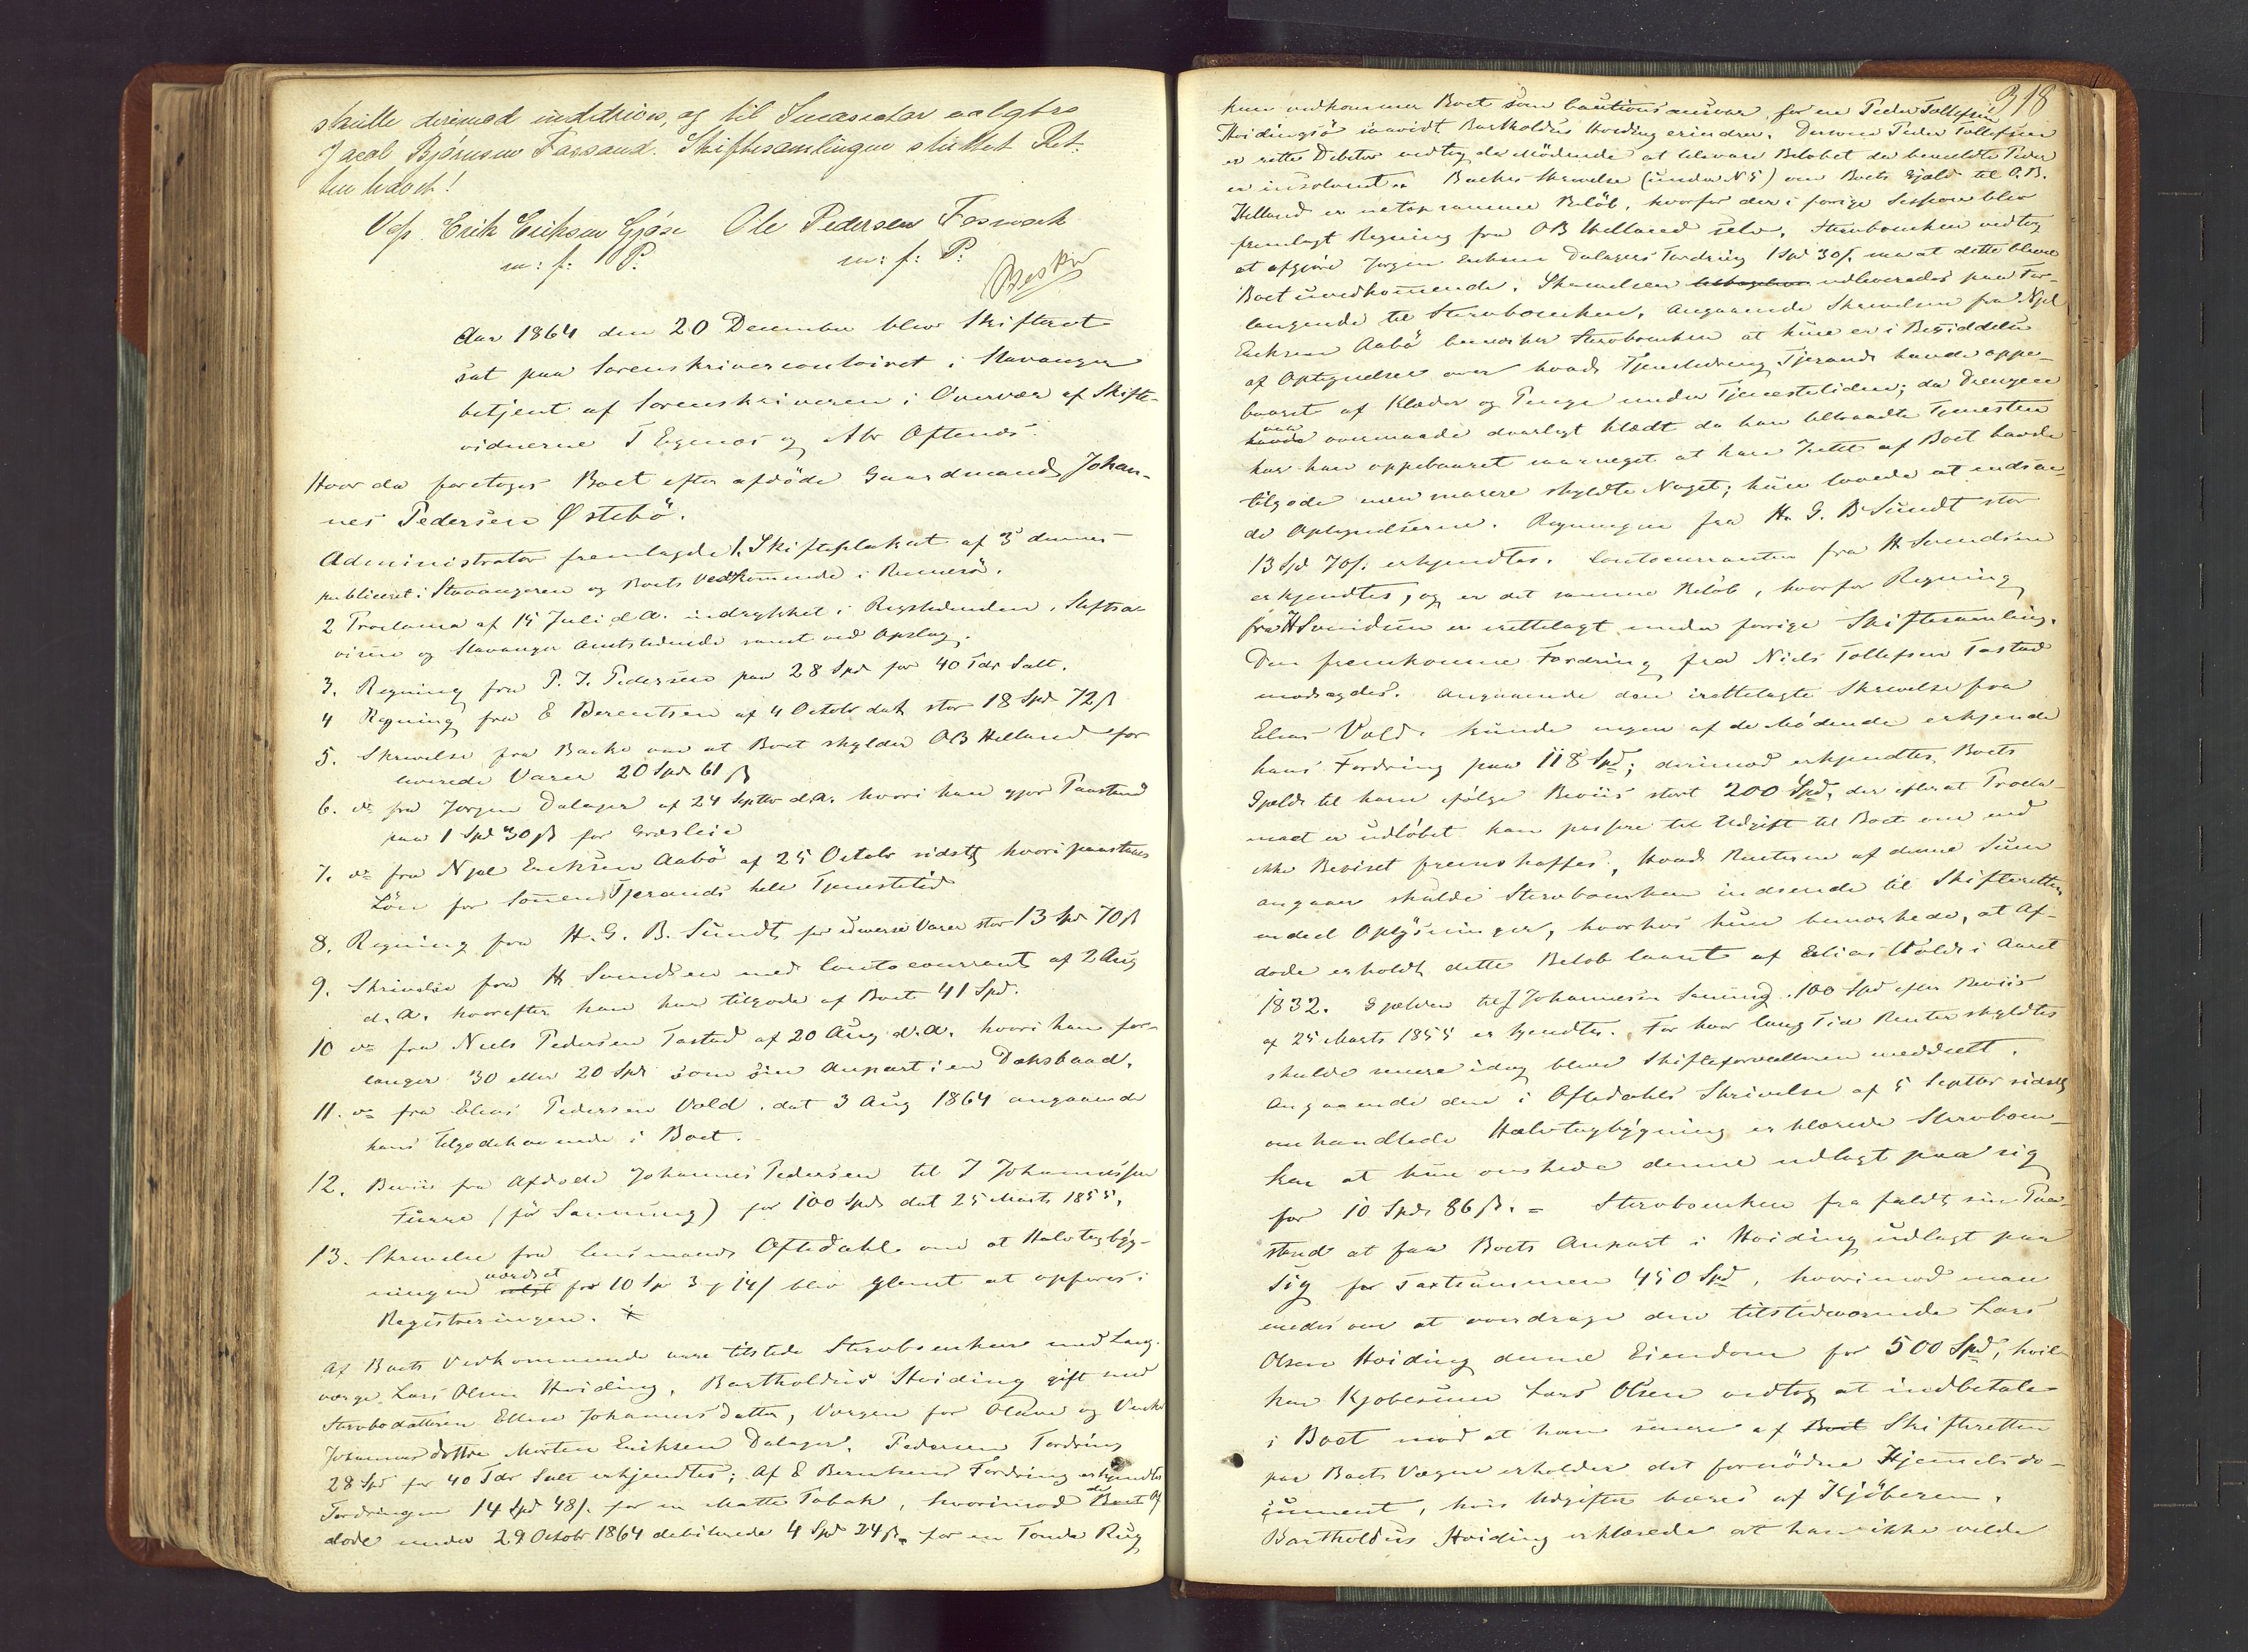 skulle derimod inddrives, og til Incasator valgtes
Jacob Bjørnsen Fossand. Skiftesamlingen sluttet Ret-
ten hævet!
Vdf. Erik Eriksen Gjøse Ole Pedersen Fosmark
m: f: P: m: f: P:
Aar 1864 den 20 December blev Skifteret
sat paa Sorenskrivercontoiret i Stavanger
betjent af Sorenskriveren i Overvær af Skifte-
vidnerne T Egenæs og Abr Oftenæs.
Hvor da foretoges Boet efter afdøde Gaardmand Johan-
nes Pedersen Østebö.
Administrator fremlagde 1. Skifteplakat af 3 dennes
publiceret i Stavangeren og Boets Vedkommende i Rennesö.
2 Proclama af 15 Juli d. A. indrykket i Rigstidenden, Stiftsa-
visen og Stavanger Amtstidende samt ved Opslag.
3. Regning fra P. T. Pedersen paa 28 Spd for 40 Tdr Salt.
4 Regning fra E Berentsen af 4 Octobr dat stor 18 Spd 72 ß
5. Skrivelse fra Backe om at Boet skylder OB Helland for
leverede Varer 20 Spd 61 ß
6. do fra Jørgen Dalager af 24 Septbr d.A. hvori han gjør Paastand
paa 1 Spd 30 ß for Græsleie
7. do fra Njel Eriksen Aabö af 25 Octobr sidstl hvori paastaaes
Lön for Sønnen Tjerands hele Tjenestetid
8. Regning fra H. G. B. Sundt for diverse Varer stor 13 Spd 70 ß
9. Skrivelse fra H Svendsen med Contocourant af 2 Aug
d. A. hvorefter han har tilgode af Boet 41 Spd.
10 do fra Niels Pedersen Tastad af 20 Aug d. A. hvori han for-
langer 30 eller 20 Spd som sin Anpart i en Dæksbaad.
11. do fra Elias Pedersen Vold. dat 3 Aug 1864 angaaende
hans Tilgodehavende i Boet.
12. Beviis fra Afdøde Johannes Pedersen til J Johannessen
Furre (för Sanning) for 100 Spd dat 25 Marts 1855.
13. Skrivelse fra Lensmand Oftedahl om at Halvtagbyg-
ningen værdsat for 10 Sp 3 og 14 ß blev glemt at opføres i
Registreringen.
Af Boets Vedkommende vare tilstede Stervboenken med Laug-
værge Lars Olsen Hviding, Bartholdus Hviding gift med
Stervbodatteren Ellen Johannesdatter, Værgen for Olava og
Johannesdöttre Morten Eriksen Dalager. Pedersens Fordring
28 Spd for 40 Tdr Salt erkjendtes; Af E Berentsens Fordring erkjendtes
Fordringen 14 Spd 48 ß. for en Matte Tobak, hvorimod de Boet Af
døde under 29 Octobr 1864 debiterede 4 Spd 24 ß. for en Tønde Rug
318
kun vedkommer Boet som Cautionsansvar for en Peder Tollefsen
Hvidingsö saavidt Bartholdus Hviding erindrer. Dersom Peder Tollefsen
er rette Debitor vedtog de Mödende at tilsvare Beløbet da bemeldte Peder
er insolvent. Backes Skrivelse (under N 5) om Boets Gjæld til O. B.
Helland er netop samme Beløb, hvorfor der i forrige Session blev
fremlagt Regning fra OB Helland selv. Stervboenken vedtog
at afgjøre Jørgen Eriksen Dalagers Fordring 1 Spd 30 ß. saa at dette bliver
Boet uvedkommende. Skrivelsen udleveredes paa For-
langende til Stervboenken. Angaaende Skrivelsen fra Njel
Eriksen Aabö bemærker Stervboenken at hun er i Besiddelse
af Optegnelser over hvad Tjenestedreng Tjerand havde oppe-
baaret af Klæder og Penge under Tjenestetiden; da Drengen
var overmaade daarligt klædt da han tiltraadte Tjenesten
har han oppebaaret saameget at han Intet af Boet havde
tilgode men snarere skyldte Noget; hun lovede at indsen-
de Optegnelserne. Regningen fra H. G. B. Sundt stor
13 Spd 70 ß. erkjendtes. Contocuranten fra H Svendsen
erkjendtes, og er det samme Beløb, hvorfor Regning
fra H Svendsen er irettelagt under forrige Skiftesamling.
Den fremkomne Fordring fra Niels Tollefsen Tastad
modsagdes. Angaaende den irettelagte Skrivelse fra
Elias Vold. kunde ingen af de Mödende erkjende
hans Fordring paa 118 Spd; derimod erkjendtes Boets
Gjæld til ham ifølge Beviis stort 200 Spd, der efterat Procla-
maet er udløbet kan passere til Udgift til Boet om end
ikke Beviset fremskaffes. Hvad Renterne af denne Sum
angaaer skulde Stervboenken indsende til Skifteretten
endeel Oplysninger, hvorhos hun bemærkede, at Af-
døde erholdt dette Beløb laant af Elias Vold i Aaret
1832. Gjælden til J Johannesen Sanning 100 Spd efter Beviis
af 25 Marts 1855 erkjendtes. For hvor lang Tid Renter skyldtes
skulde senere idag blive Skifteforvalteren meddeelt.
Angaaende den i Oftedahls Skrivelse af 5 Septbr sidstl
omhandlede Halvtagbygning erklærede Stervboen-
ken at hun ønskede denne udlagt paa sig
for 10 Spd 86 ß. = Stervboenken frafaldt sin Paa-
stand at faa Boets Anpart i Hviding udlagt paa
sig for Taxtsummen 450 Spd, hvorimod man
enedes om at overdrage den tilstedeværende Lars
Olsen Hviding denne Eiendom for 500 Spd, hvil-
ken Kjøbesum Lars Olsen vedtog at indbetale
i Boet mod at han senere af Boet Skifteretten
paa Boets Vegne erholder det fornødne Hjemelsdo-
cument, hvis Udgifter bæres af Kjöberen.
Bartholdus Hviding erklærede at han ikke vilde